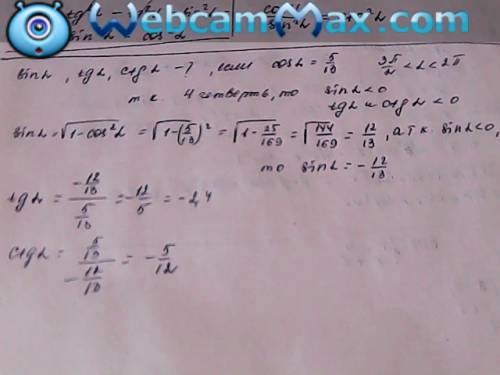 WebcamMax.com
sinα, tgα, ctgα - ?, если cosα = 5/13 3π/2 < α < 2π
т.к. 4 четверть, то sinα < 0
tgα и ctgα < 0
sinα = √1-cos²α = √1-(5/13)² = √1-25/169 = √144/169 = 12/13, а т.к. sinα<0,
то sinα = -12/13.
tgα = -12/13 / 5/13 = -12/5 = -2,4
ctgα = 5/13 / -12/13 = -5/12